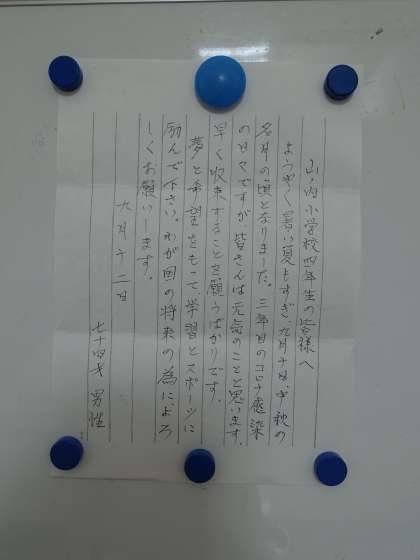 山ノ内小学校四年生の皆様へ
ようやく暑い夏もすぎ、九月十日、中秋の
名月の頃となりました。三年目のコロナ感染
の日々ですが、皆さんは元気のことと思います。
早く収束することを願うばかりです。
夢と希望をもって学習とスポーツに
励んで下さい。わが国の将来の為に、よろ
しくお願いします。
九月十二日
七十四才 男性